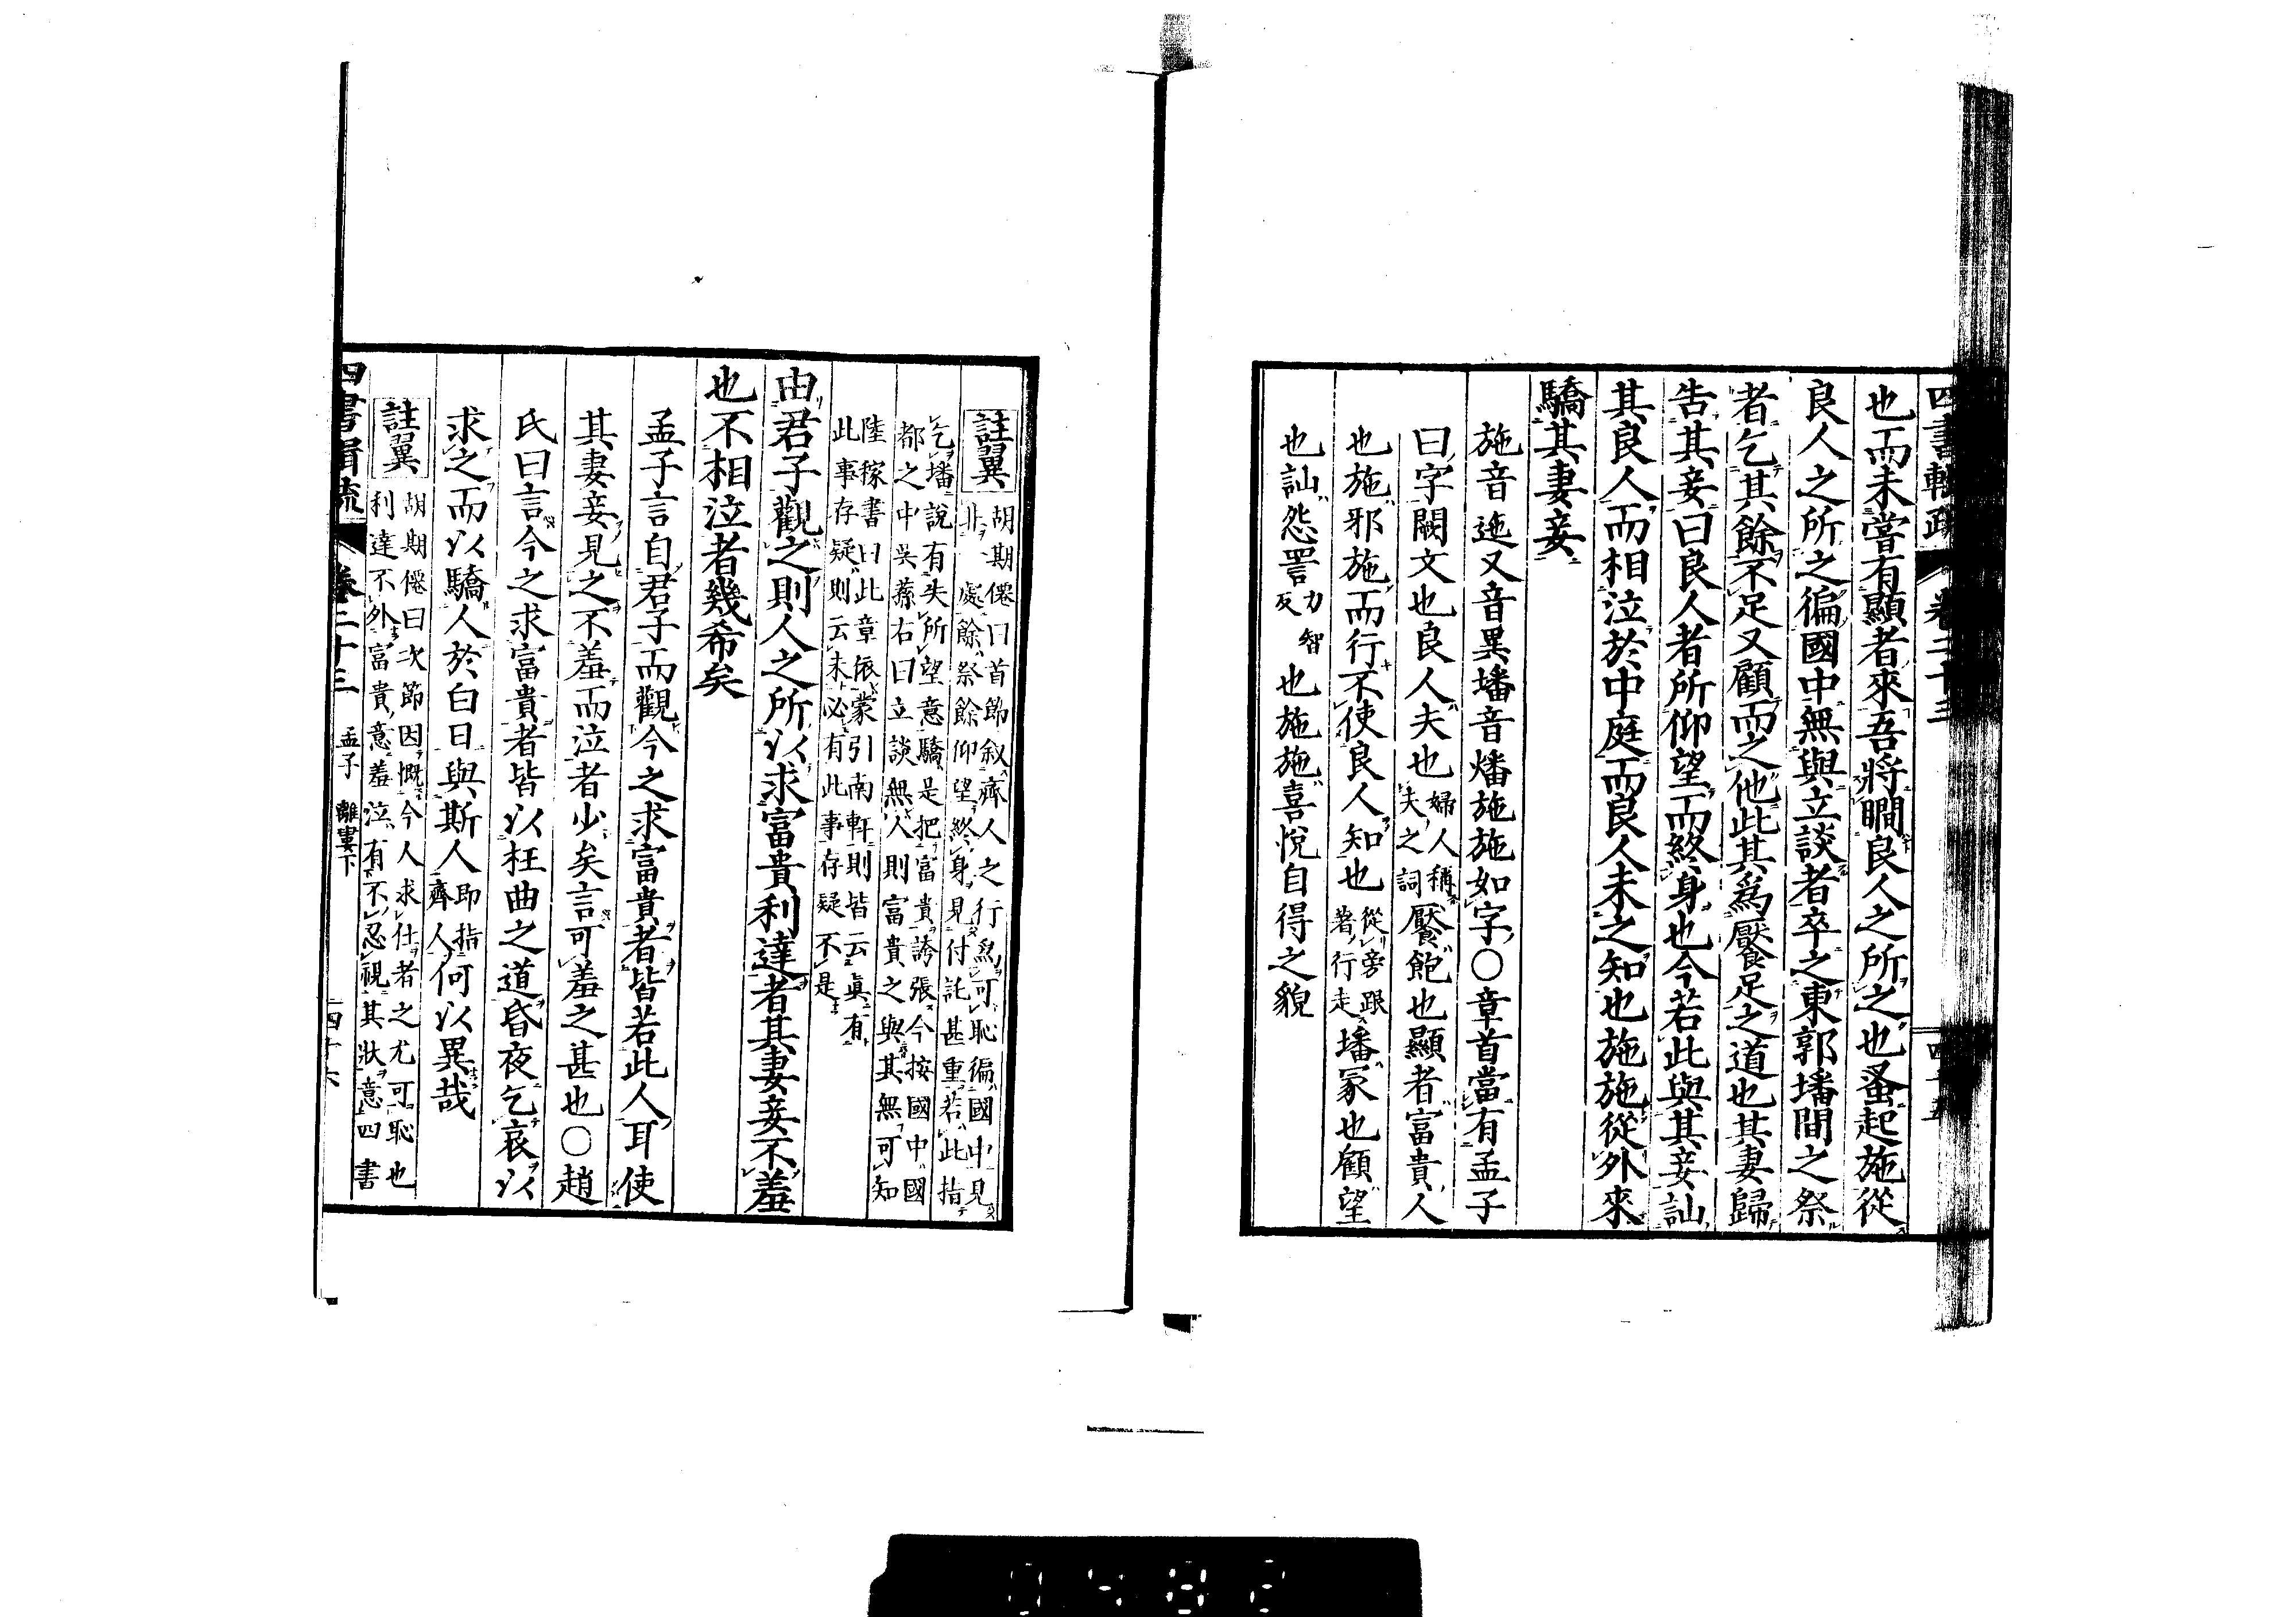 四書輯疏 卷二十三 四十五
也而未嘗有顯者來吾將瞷良人之所之也蚤起施從
良人之所之徧國中無與立談者卒之東郭墦間之祭
者乞其餘不足又顧而之他此其爲饜足之道也其妻歸
告其妾曰良人者所仰望而終身也今若此與其妾訕
其良人而相泣於中庭而良人未之知也施施從外來
驕其妻妾
施音迤又音異墦音燔施施如字○章首當有孟子
曰字闕文也良人夫也婦人稱夫之詞饜飽也顯者富貴人
也施邪施而行不使良人知也從旁跟著行走墦冢也顧望
也訕怨詈力智反也施施喜悅自得之貌
註翼 胡期僊曰首節叙齊人之行爲可恥徧國中見
非一處餘祭餘仰望終身見付託甚重若此指
乞墦說有失所望意驕是把富貴誇張今按國中國
都之中吳蓀右曰立談無人則富貴之與其無可知
陸稼書曰此章依蒙引南軒則皆云眞有
此事存疑則云未必有此事存疑不是
由君子觀之則人之所以求富貴利達者其妻妾不羞
也不相泣者幾希矣
孟子言自君子而觀今之求富貴者皆若此人耳使
其妻妾見之不羞而泣者少矣言可羞之甚也○趙
氏曰言今之求富貴者皆以枉曲之道昏夜乞哀以
求之而以驕人於白日與斯人即指齊人何以異哉
註翼 胡期僊曰次節因慨今人求仕者之尤可恥也
利達不外富貴意羞泣有不忍視其狀意四書
四書輯疏 卷二十三 孟子 離婁下 四十六